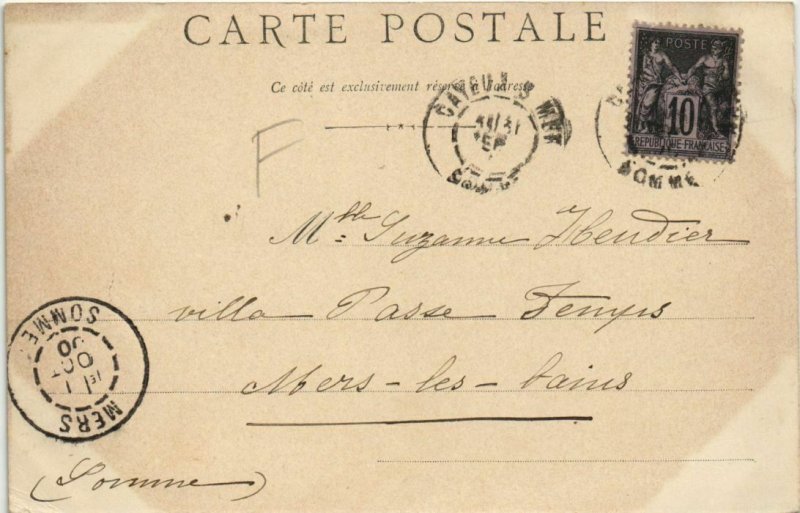 CARTE POSTALE
Ce côté est exclusivement réservé à l'adresse
POSTE
10
RÉPUBLIQUE FRANÇAISE
CAYEUX S MER
SOMME
SOMME
F
Mlle Suzanne Heudier
villa Passe Temps
Mers-les-bains
(Somme)
MERS
SOMME
1
OCT
00